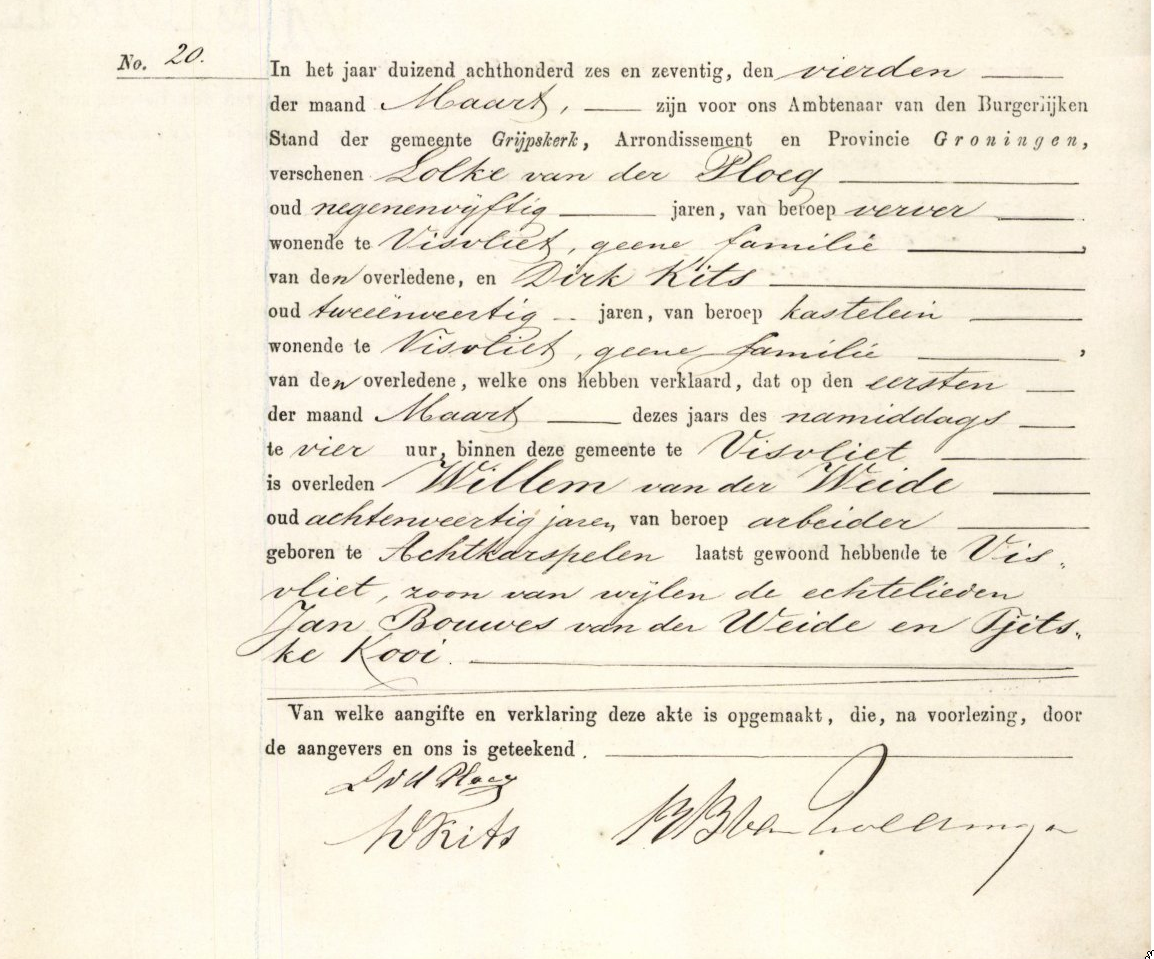 No. 20.
In het jaar duizend achthonderd zes en zeventig, den vierden
der maand Maart, zijn voor ons Ambtenaar van den Burgerlijken
Stand der gemeente Grijpskerk, Arrondissement en Provincie Groningen,
verschenen Lolke van der Ploeg
oud negenenvijftig jaren, van beroep verver
wonende te Visvliet, geene familie,
van den overledene, en Dirk Kits
oud tweeënveertig jaren, van beroep kastelein
wonende te Visvliet, geene familie,
van den overledene, welke ons hebben verklaard, dat op den eersten
der maand Maart dezes jaars des namiddags
te vier uur, binnen deze gemeente te Visvliet
is overleden Willem van der Weide
oud achtenveertig jaren, van beroep arbeider
geboren te Achtkarspelen laatst gewoond hebbende te Vis-
vliet, zoon van wijlen de echtelieden
Jan Bouwes van der Weide en Tjits-
ke Kooi.
Van welke aangifte en verklaring deze akte is opgemaakt, die, na voorlezing, door
de aangevers en ons is geteekend.
L v d Ploeg
Kits